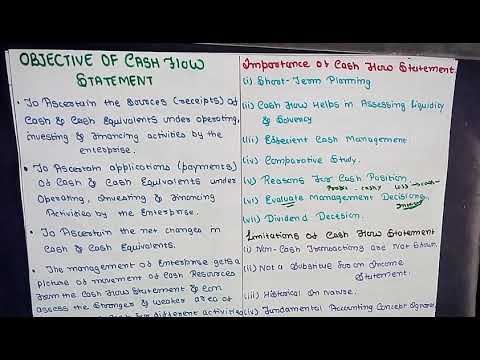 OBJECTIVE OF CASH FLOW
STATEMENT
• To Ascertain the sources (receipts) of
Cash & Cash Equivalents under operating,
investing & Financing activities by the
enterprise.
• To Ascertain applications (payments)
Of Cash & Cash Equivalents under
Operating, Investing & Financing
Activities by the Enterprise.
• To Ascertain the net changes in
Cash & Cash Equivalents.
• The management of Enterprise gets a
Picture of movement of Cash Resources
From the Cash Flow Statement & Can
assess the Stronger & weaker area of
for different activities
Importance of Cash Flow Statement
(i) Short-Term Planning
(ii) Cash Flow Helps in Assessing Liquidity
& Solvency
(iii) Efficient Cash Management
(iv) Comparative Study.
(v) Reasons For Cash Position.
Profit - cash↓ loss → cash
(vi) Evaluate Management Decisions.
(vii) Dividend Decision.
Limitations of Cash Flow Statement
(i) Non-Cash Transactions are Not Shown.
(ii) Not a Substitute For an Income
Statement.
(iii) Historical In Nature.
(iv) Fundamental Accounting Concept